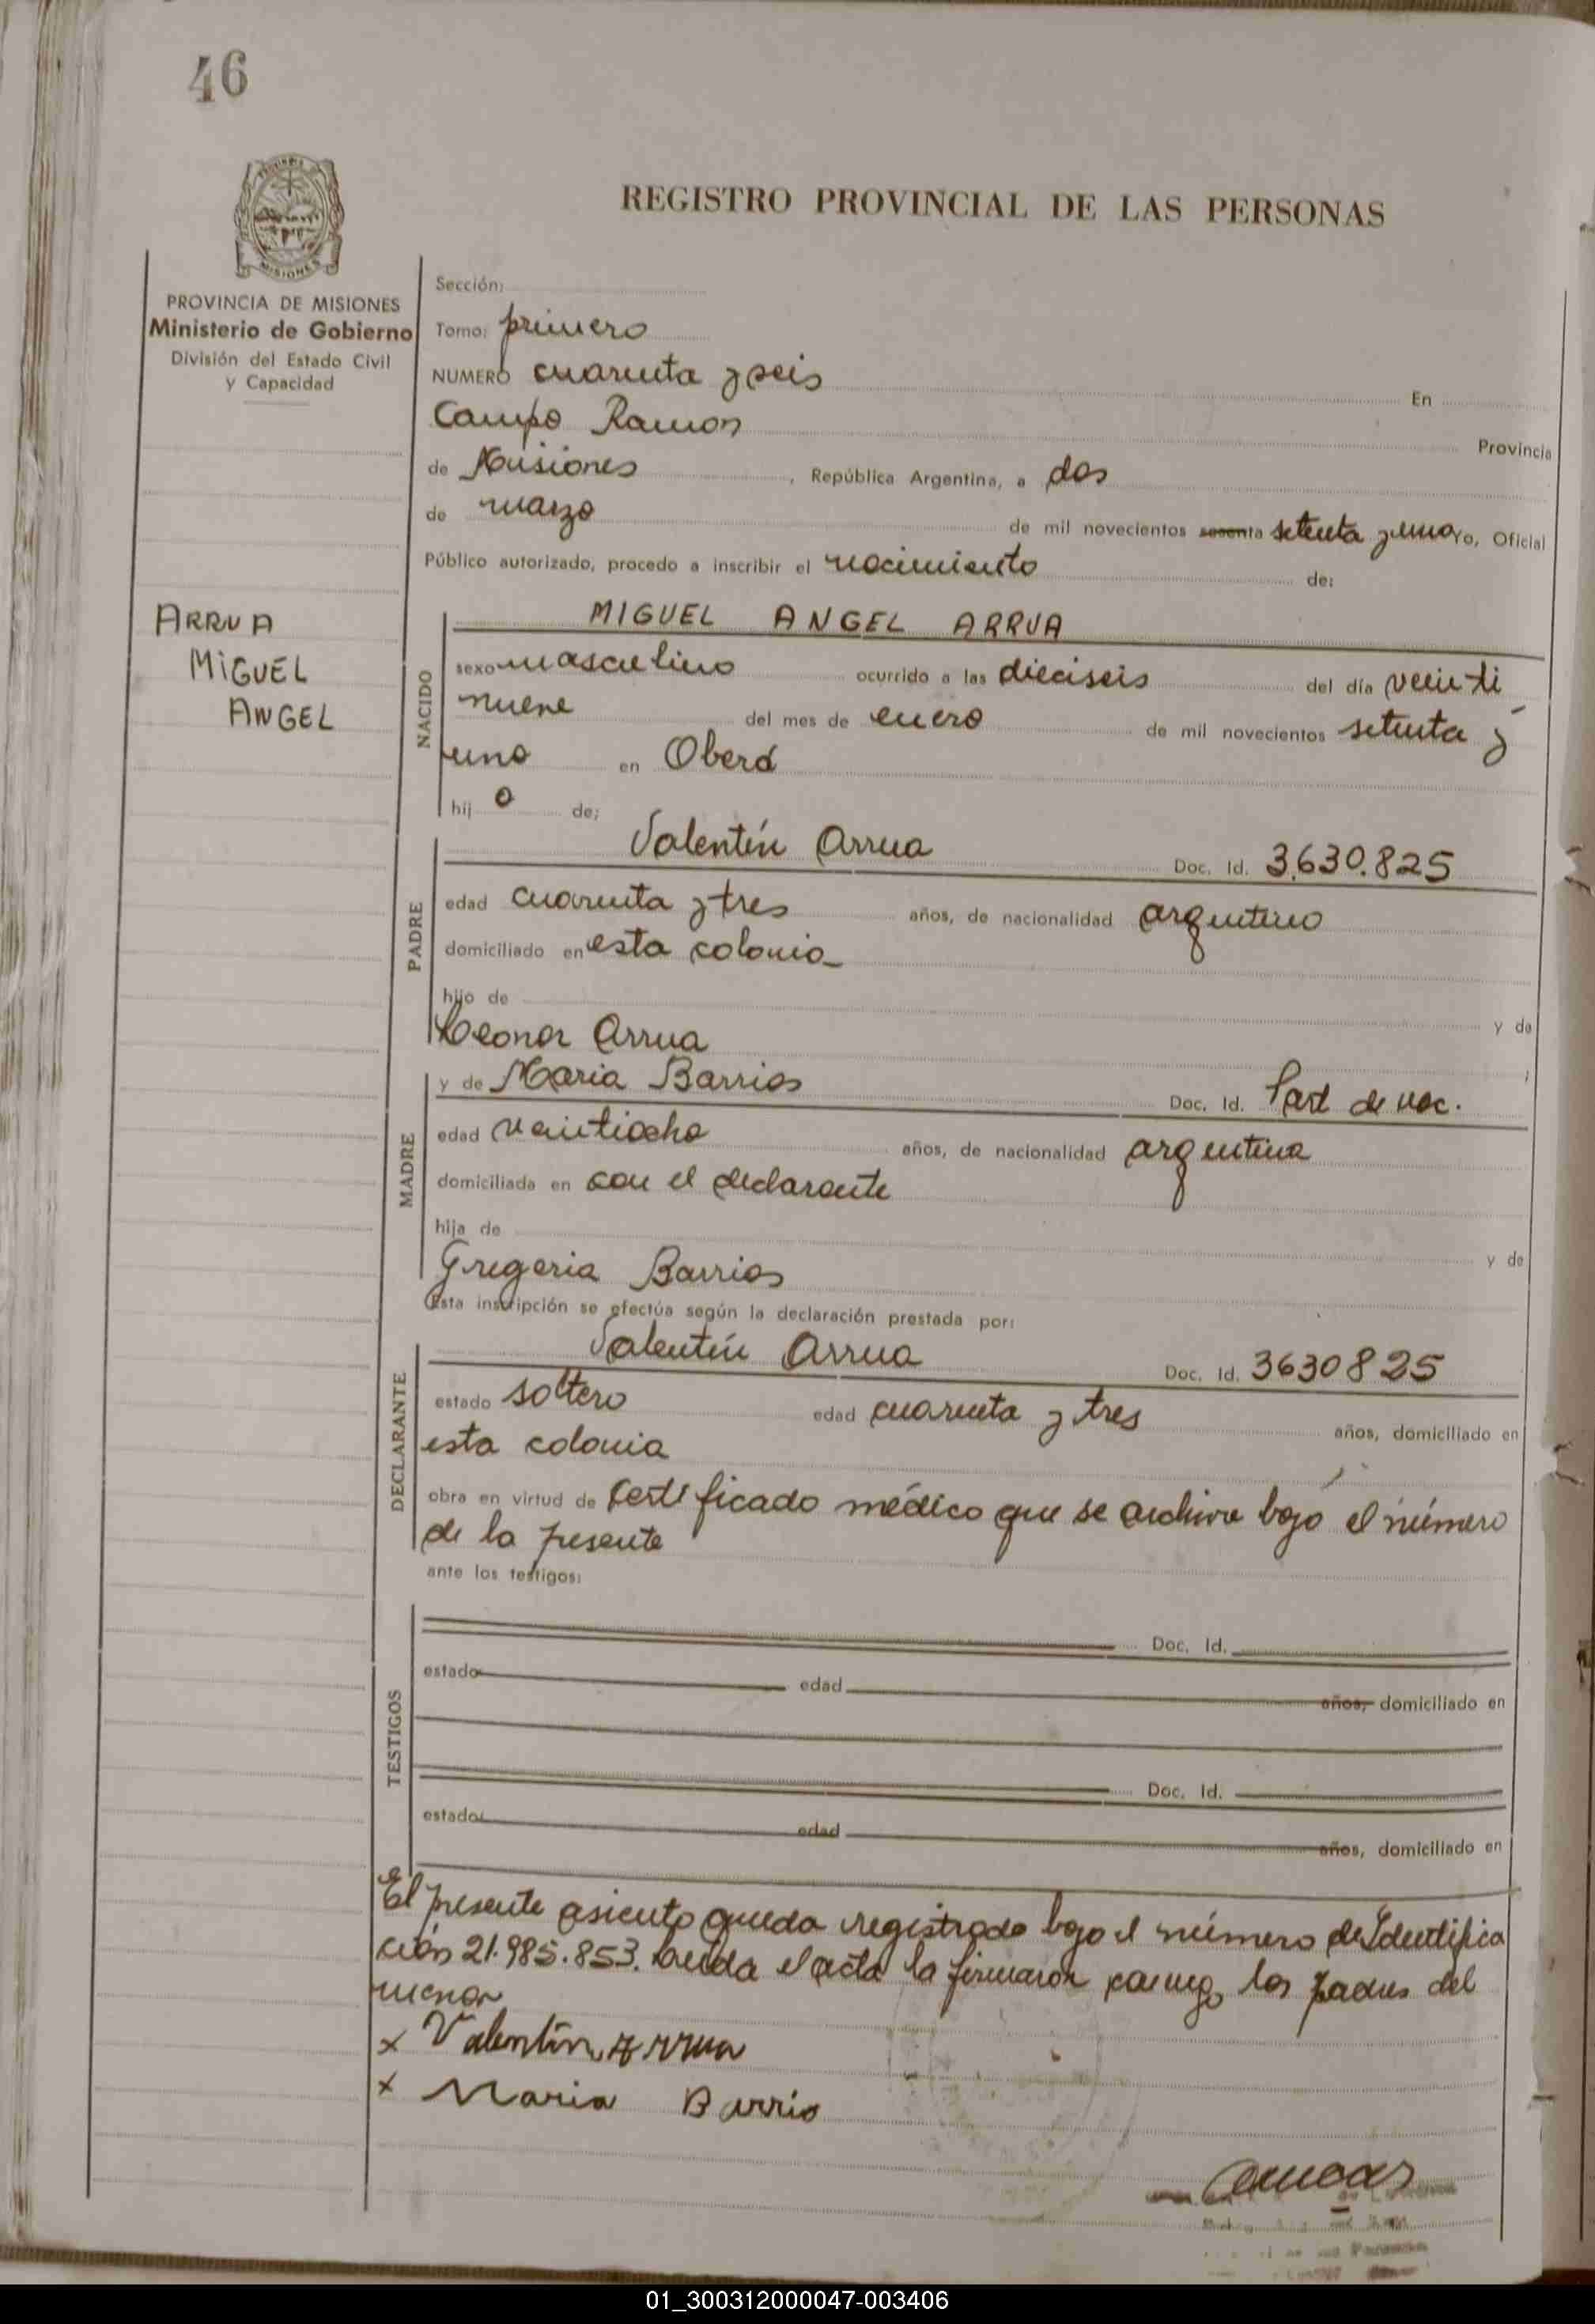 46
REGISTRO PROVINCIAL DE LAS PERSONAS
MISIONES
PROVINCIA DE MISIONES
Ministerio de Gobierno
División del Estado Civil
y Capacidad
Sección:
Tomo: primero
NUMERO cuarenta y seis En
Campo Ramon Provincia
de Misiones, República Argentina, a dos
de marzo de mil novecientos sesenta setenta y uno Yo, Oficial
Público autorizado, procedo a inscribir el nacimiento de:
ARRUA
MIGUEL
ANGEL
NACIDO
MIGUEL ANGEL ARRUA
sexo masculino ocurrido a las dieciseis del día veinti
nueve del mes de enero de mil novecientos setenta y
uno en Oberá
hij o de:
PADRE
Valentín Arrua Doc. Id. 3.630.825
edad cuarenta y tres años, de nacionalidad argentino
domiciliado en esta colonia
hijo de y de
Leonor Arrua
MADRE
y de Maria Barrios Doc. Id. Part de nac.
edad veintiocho años, de nacionalidad argentina
domiciliada en con el declarante
hija de y de
Gregoria Barrios
Esta inscripción se efectúa según la declaración prestada por:
DECLARANTE
Valentín Arrua Doc. Id. 3630825
estado soltero edad cuarenta y tres años, domiciliado en
esta colonia
obra en virtud de certificado médico que se archiva bajo el número
de la presente
ante los testigos:
TESTIGOS
Doc. Id.
estado edad años, domiciliado en
Doc. Id.
estado edad años, domiciliado en
El presente asiento queda registrado bajo el número de Identifica
ción 21.985.853. Leída el acta la firmaron conmigo los padres del
menor
x Valentín Arrua
x Maria Barrio
01_300312000047-003406